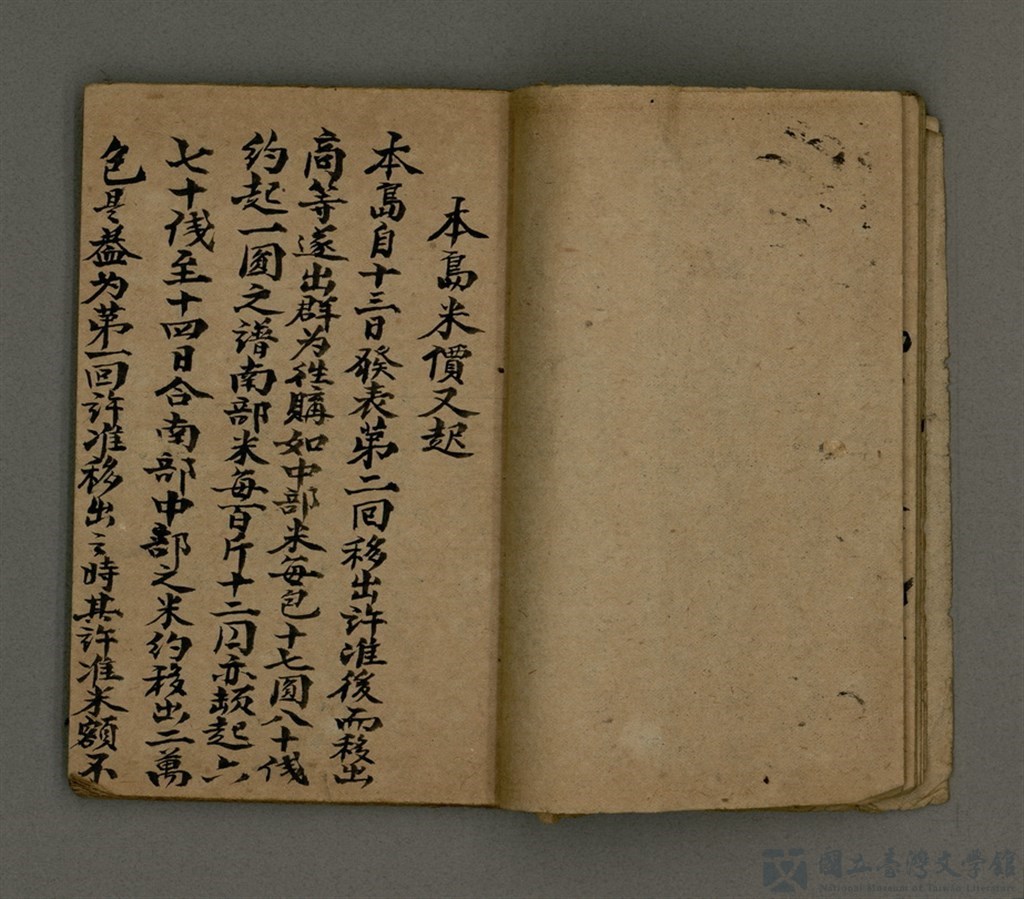 本島米價又起
本島自十三日發表第二回移出許准後而移出
商等遂出群为徃購如中部米每包十七圓八十伐
約起一圓之譜南部米每百斤十二円亦起六
七十伐至十四日合南部中部之米約移出二萬
包是盖为第一回許准移出之時其許准米額不
國立臺灣文學館
National Museum of Taiwan Literature